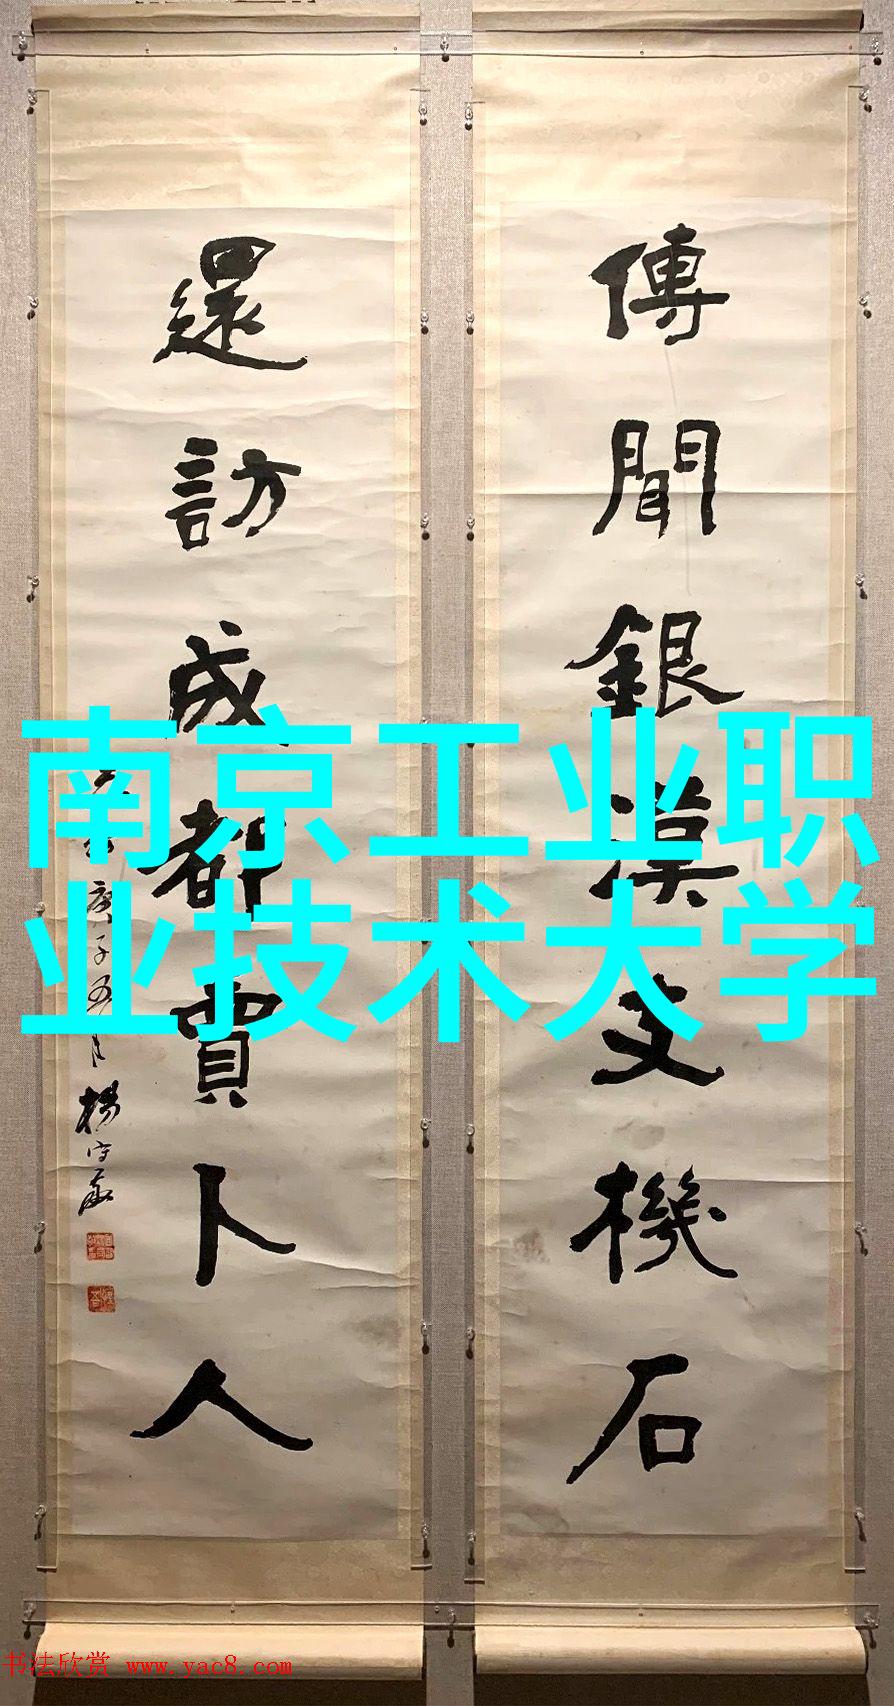 傳聞銀漢支機石
還訪成都賣卜人
庚子五月
楊守敬
南京工业职
业技术大学
书法欣赏 www.yac8.com